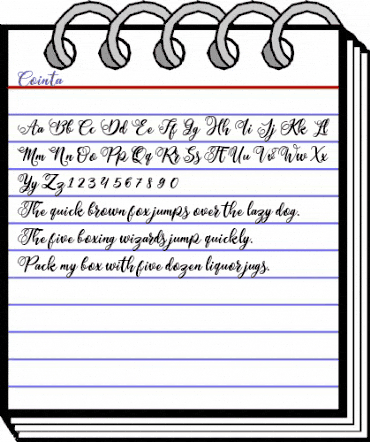 Cointa
Aa Bb Cc Dd Ee Ff Gg Hh Ii Jj Kk Ll
Mm Nn Oo Pp Qq Rr Ss Tt Uu Vv Ww Xx
Yy Zz 1 2 3 4 5 6 7 8 9 0
The quick brown fox jumps over the lazy dog.
The five boxing wizards jump quickly.
Pack my box with five dozen liquor jugs.